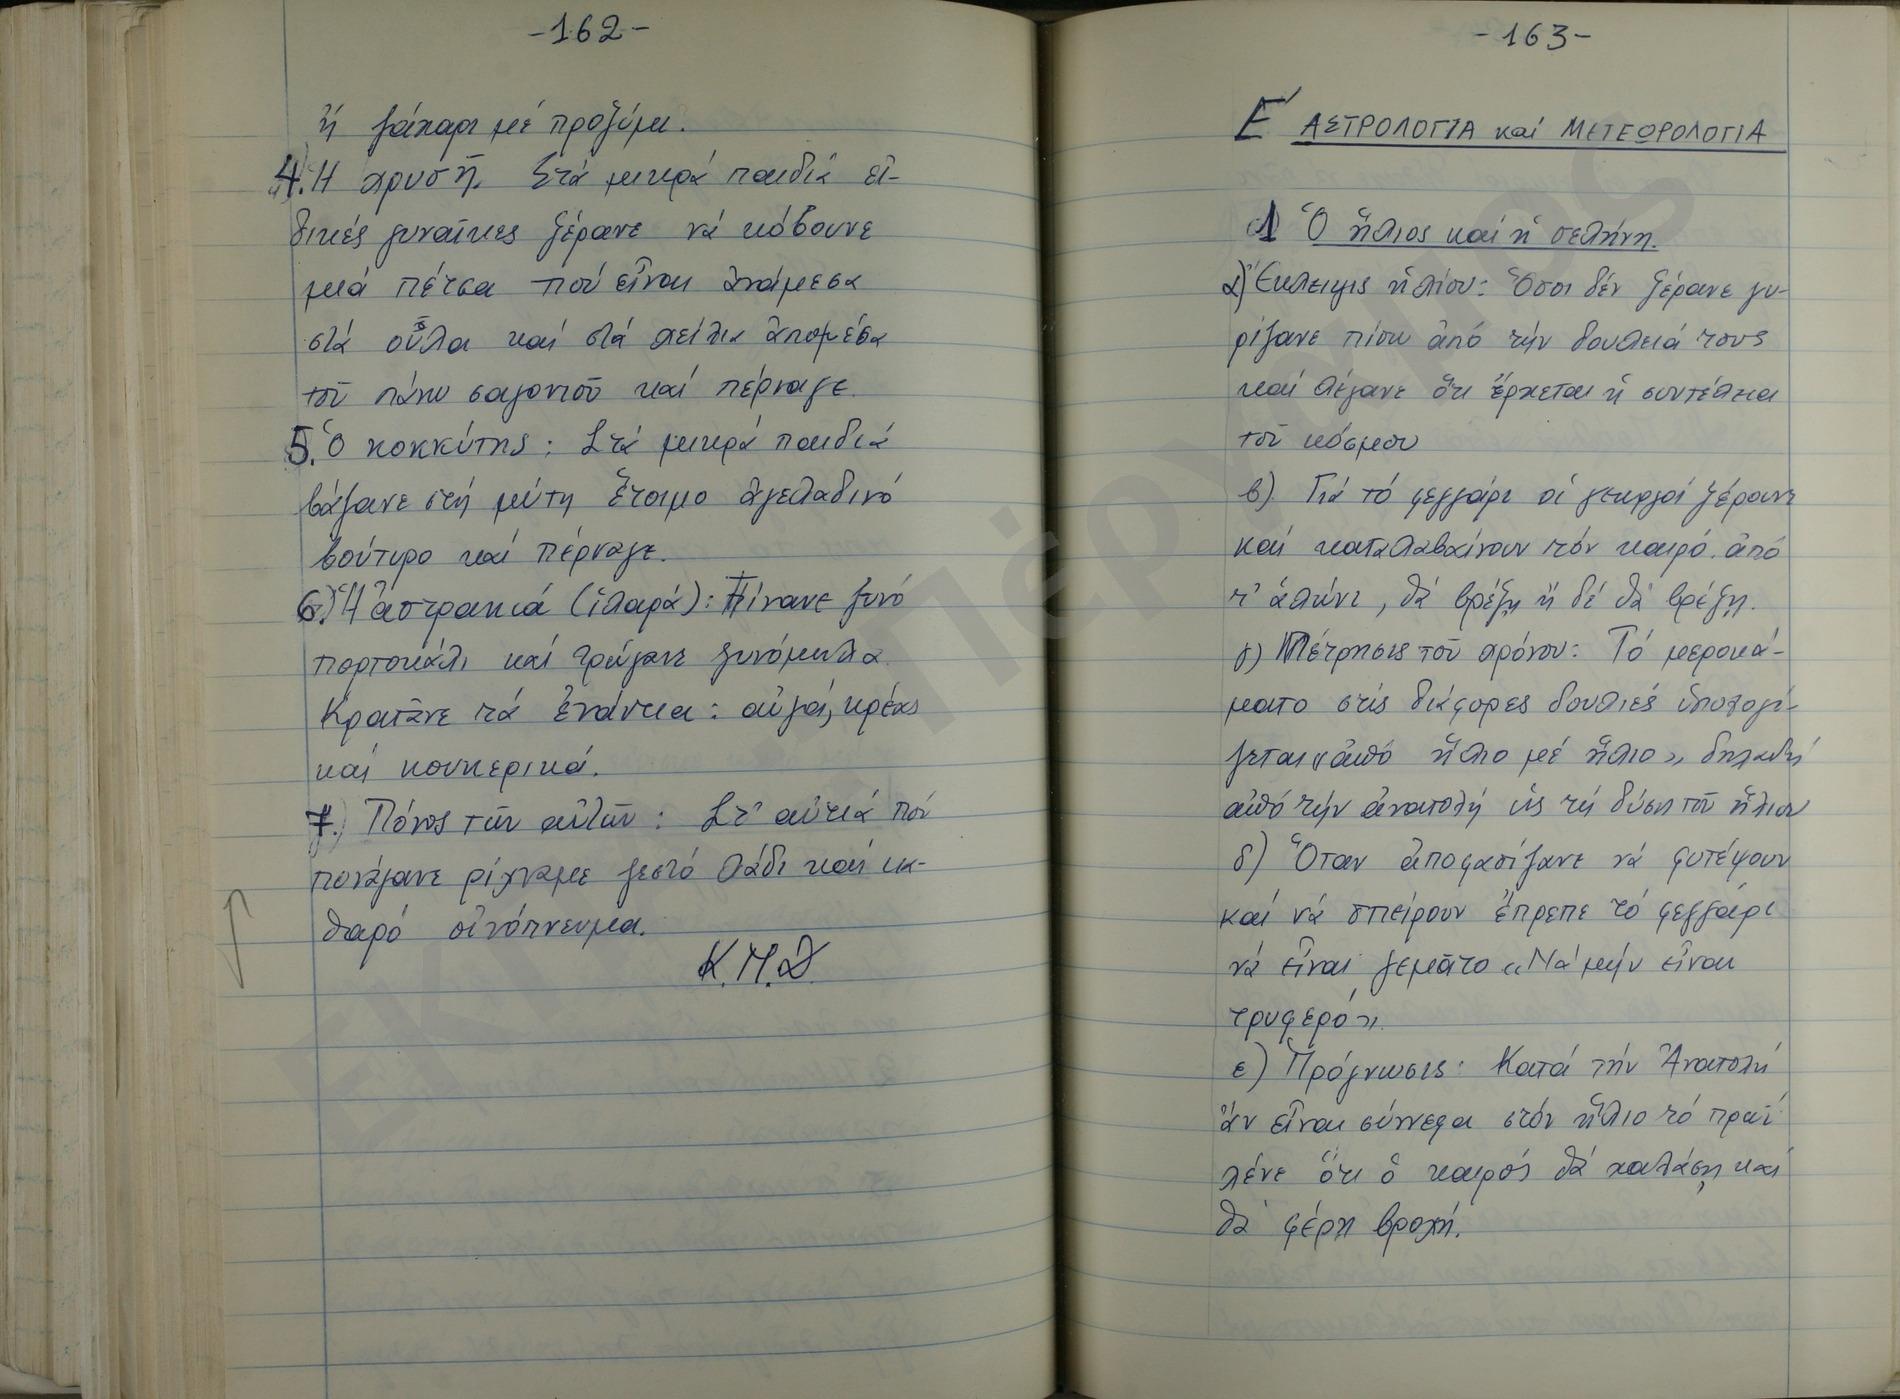 -162-
ἤ ζάχαρι μέ προζύμι.
4. Ἡ χρυσῆ. Στά μικρά παιδιά εἰ-
δικές γυναῖκες ξέρανε νά κόβουνε
μιά πέτσα πού εἶναι ἀνάμεσα
στά οὖλα καί στά χείλια ἀπομέσα
τοῦ πάνω σαγονιοῦ καί πέρναγε.
5. Ὁ κοκκύτης: Στά μικρά παιδιά
βάζανε στή μύτη ἕτοιμο ἀγελαδινό
βούτυρο καί πέρναγε.
6. Ἡ ἀστρακιά (ἱλαρά): Πίνανε ξυνό
πορτοκάλι καί τρώγανε ξυνόμηλα.
Κρατᾶνε τά ἐνάντια: αὐγά, κρέας
καί κουκερικά.
7. Πόνος τῶν αὐτῶν: Στ' αὐτιά πού
πονάγανε ρίχναμε ζεστό λάδι καί κα-
θαρό οἰνόπνευμα.
Κ.Μ.Δ.
-163-
Ε΄ ΑΣΤΡΟΛΟΓΙΑ καί ΜΕΤΕΩΡΟΛΟΓΙΑ
1 Ὁ ἥλιος καί ἡ σελήνη.
α) Ἔκλειψις ἡλίου: Ὅσοι δέν ξέρανε γυ-
ρίζανε πίσω ἀπό τήν δουλειά τους
καί λέγανε ὅτι ἔρχεται ἡ συντέλεια
τοῦ κόσμου
β) Γιά τό φεγγάρι οἱ γεωργοί ξέρουνε
καί καταλαβαίνουν τόν καιρό. ἀπό
τ' ἁλώνι, θά βρέξῃ ἤ δέ θά βρέξῃ.
γ) Μέτρησις τοῦ χρόνου: Τό μεροκά-
ματο στίς διάφορες δουλιές ὑπολογί-
ζεται «ἀπό ἥλιο μέ ἥλιο» δηλαδή
ἀπό τήν ἀνατολή ὡς τή δύση τοῦ ἥλιου
δ) Ὅταν ἀποφασίζανε νά φυτέψουν
καί νά σπείρουν ἔπρεπε τό φεγγάρι
νά εἶναι γεμᾶτο «Νά μήν εἶναι
τρυφερό».
ε) Πρόγνωσις: Κατά τήν Ἀνατολή
ἄν εἶναι σύννεφα στόν ἥλιο τό πρωΐ
λένε ὅτι ὁ καιρός θά χαλάσῃ καί
θά φέρῃ βροχή.